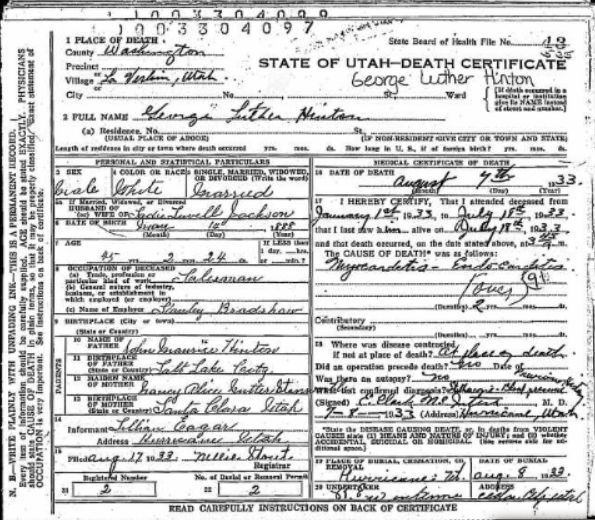 1003304097
1 PLACE OF DEATH
County Washington
State Board of Health File No.
Precinct
STATE OF UTAH—DEATH CERTIFICATE
Village or La Verkin, Utah.
George Luther Hinton
City No. St. Ward
(If death occurred in a hospital or institution give its NAME instead of street and number.)
2 FULL NAME George Luther Hinton
(a) Residence. No. St.
(USUAL PLACE OF ABODE) (IF NON-RESIDENT GIVE CITY OR TOWN AND STATE)
Length of residence in city or town where death occurred yrs. mos. ds. How long in U. S., if of foreign birth? yrs. mos. ds.
PERSONAL AND STATISTICAL PARTICULARS
3 SEX
4 COLOR OR RACE
SINGLE, MARRIED, WIDOWED, OR DIVORCED (Write the word)
Male White Married
5a If Married, Widowed, or Divorced
HUSBAND OF
(or) WIFE OF Jackson
6 DATE OF BIRTH 14 1888
(Month) (Day) (Year)
7 AGE
If LESS than 1 day, hrs. or min.?
45 yrs. 2 mos. 24 ds.
8 OCCUPATION OF DECEASED
(a) Trade, profession or particular kind of work Salesman
(b) General nature of industry, business, or establishment in which employed (or employer)
(c) Name of Employer Stanley Bradshaw
9 BIRTHPLACE (City or town)
(State or Country)
PARENTS
10 NAME OF FATHER John Maurice Hinton
11 BIRTHPLACE OF FATHER
(State or Country) Salt Lake City
12 MAIDEN NAME OF MOTHER Nancy Alice
13 BIRTHPLACE OF MOTHER
(State or Country) Santa Clara Utah
14
Informant Lillian Eagar
Address Hurricane Utah
15
Filed Aug 17 1933 Nellie
Registrar
21 2
No. of Burial or Removal Permit
22 2
MEDICAL CERTIFICATE OF DEATH
16 DATE OF DEATH
August 7th 1933
(Month) (Day) (Year)
17 I HEREBY CERTIFY, That I attended deceased
from January 1st 1933 to July 18th, 1933
that I last saw him alive on July 18th, 1933
and that death occurred, on the date stated above, at m.
The CAUSE OF DEATH* was as follows:
Myocarditis - Endocarditis
(over)
(Duration) 2 yrs. mos. ds.
Contributory
(Secondary)
(Duration) yrs. mos. ds.
18 Where was disease contracted
if not at place of death? At place of death
Did an operation precede death? No
Was there an autopsy? No
What test confirmed diagnosis?
(Signed) M. D.
7-8- 1933 (Address) Hurricane, Utah
*State the DISEASE CAUSING DEATH, or, in deaths from VIOLENT CAUSES state (1) MEANS AND NATURE OF INJURY; and (2) whether ACCIDENTAL, SUICIDAL, OR HOMICIDAL. (See reverse side for additional space.)
19 PLACE OF BURIAL, CREMATION, OR REMOVAL
DATE OF BURIAL
Hurricane Ut. Aug. 8 1933
20 UNDERTAKER
ADDRESS
Cedar City, Utah
READ CAREFULLY INSTRUCTIONS ON BACK OF CERTIFICATE
N. B.—WRITE PLAINLY WITH UNFADING INK—THIS IS A PERMANENT RECORD.
Every item of information should be carefully supplied. AGE should be stated EXACTLY. PHYSICIANS should state CAUSE OF DEATH in plain terms, so that it may be properly classified. Exact statement of OCCUPATION is very important. See instructions on back of certificate.